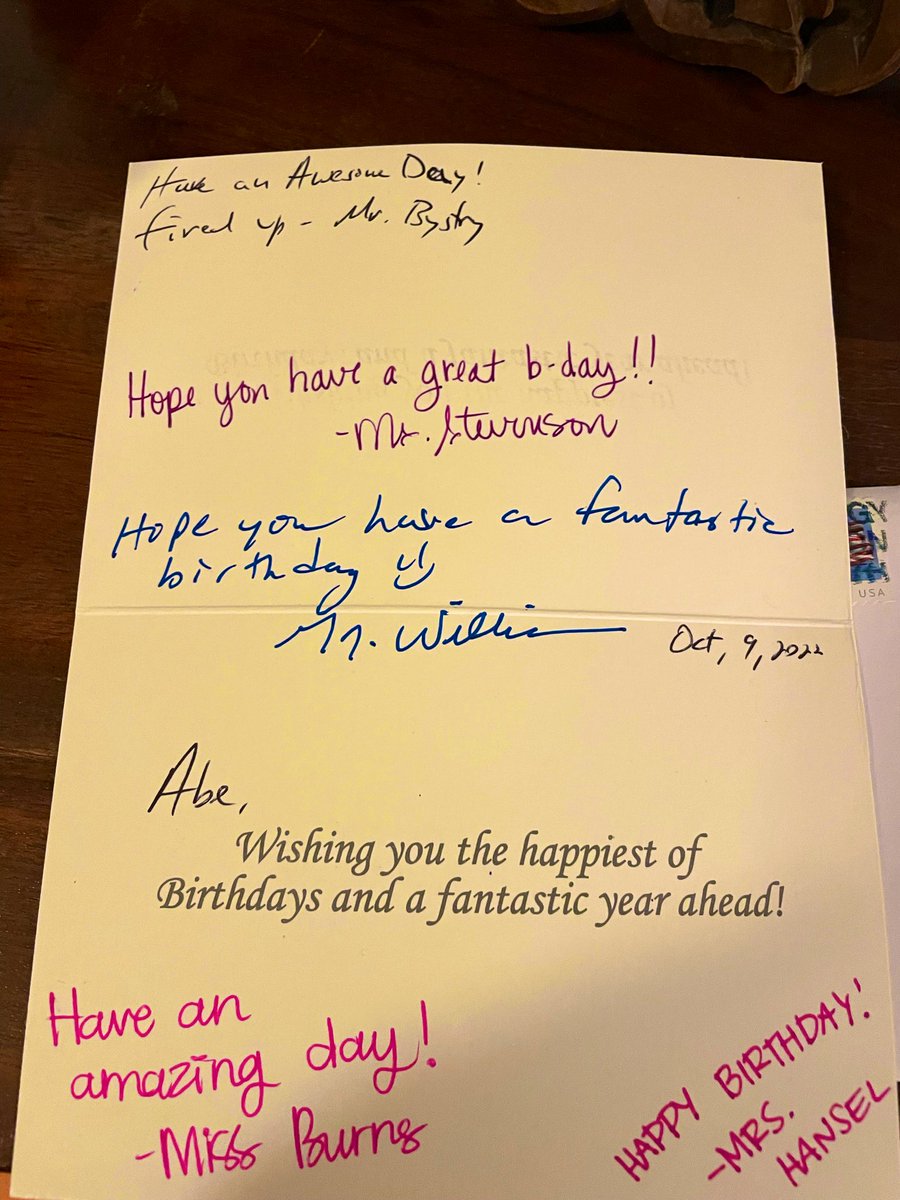 Have an Awesome Day!
Fired up - Mr. Bystry
Hope you have a great b-day!!
-Ms. Sternson
Hope you have a fantastic
birthday
Oct, 9, 2022
USA
Abe,
Wishing you the happiest of
Birthdays and a fantastic year ahead!
Have an
amazing day!
-Miss Burns
HAPPY BIRTHDAY!
-MRS.
HANSEL